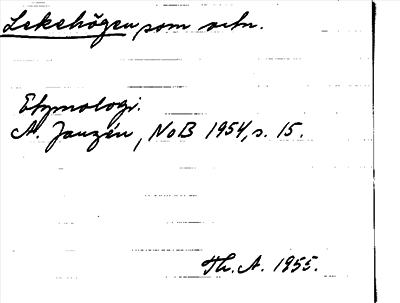 Lekehögen som ortn.
Etymologi.
A. Janzén, NoB 1954, s. 15.
Th. A. 1955.